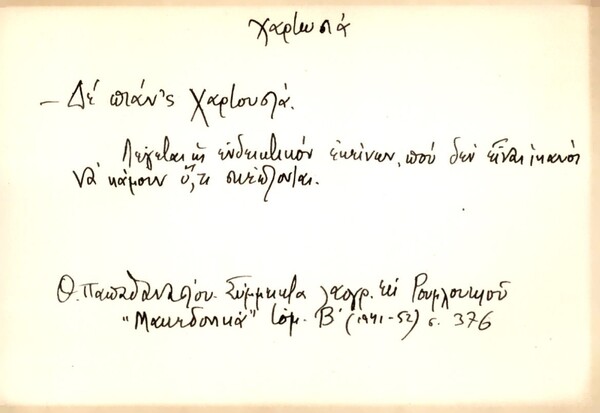 χαρτωσιά
— Δέ πιάν'ς χαρτουσιά.
Λέγεται ὡς ἐνδεικτικόν ἐκείνων, πού δέν εἶναι ἱκανοί
νά κάμουν ὅ,τι σκέπτονται.
Θ. Παπαθανασίου. Σύμμεικτα λαογρ. ἐκ Ρουμλουκιοῦ
"Μακεδονικά" τόμ. Β' (1941-52) σ. 376